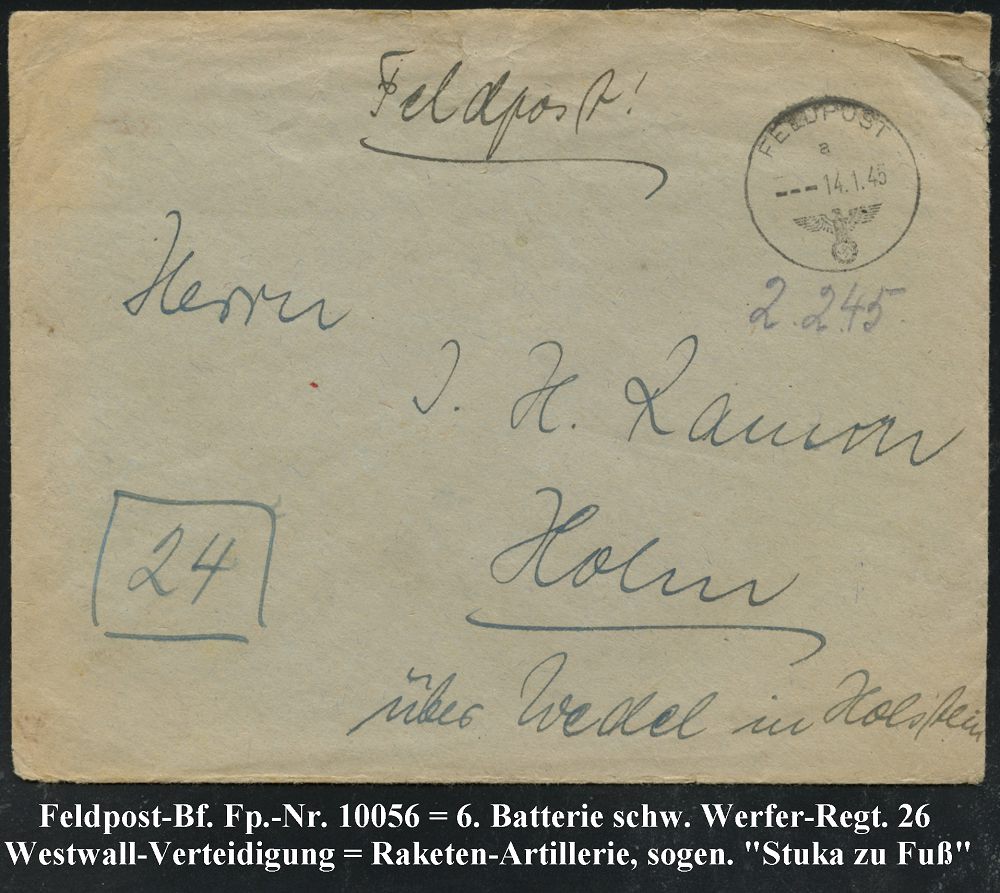 Feldpost!
FELDPOST
a
--- 14.1.45
2.2.45.
Herrn
J. H. Ramon
Holm
24
über Wedel in Holstein
Feldpost-Bf. Fp.-Nr. 10056 = 6. Batterie schw. Werfer-Regt. 26
Westwall-Verteidigung = Raketen-Artillerie, sogen. "Stuka zu Fuß"